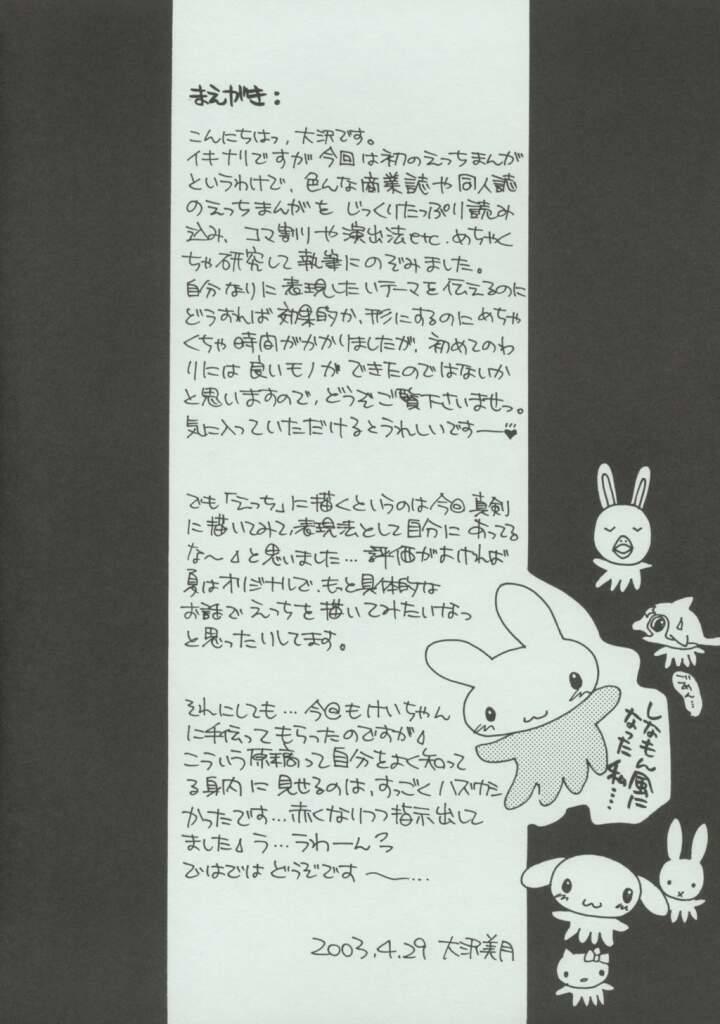 まえがき：
こんにちはっ，大沢です。
イキナリですが今回は初のえっちまんが
というわけで、色んな商業誌や同人誌
のえっちまんがを じっくりたっぷり読み
込み、コマ割りや演出法etc.めちゃく
ちゃ研究して執筆にのぞみました。
自分なりに表現したいテーマを伝えるのに
どうすれば効果的か、形にするのにめちゃ
くちゃ時間がかかりましたが、初めてのわ
りには良いモノができたのではないか
と思いますので、どうぞご覧下さいませっ。
気に入っていただけるとうれしいですー♥
でも「えっち」に描くというのは今回真剣
に描いてみて、表現法として自分にあってる
な〜♪と思いました…評価がよければ
夏はオリジナルで、もっと具体的な
お話でえっちを描いてみたいなっ
と思ったりしてます。
それにしても…今回もけいちゃん
に手伝ってもらったのですが♪
こういう原稿って自分をよく知って
る身内に見せるのは、すっごくハズカシ
かったです…赤くなりつつ指示出して
ました♪う…うわーん
ではでは どうぞです〜…
2003.4.29 大沢美月
ごめん…
しなもん風に
なった私…